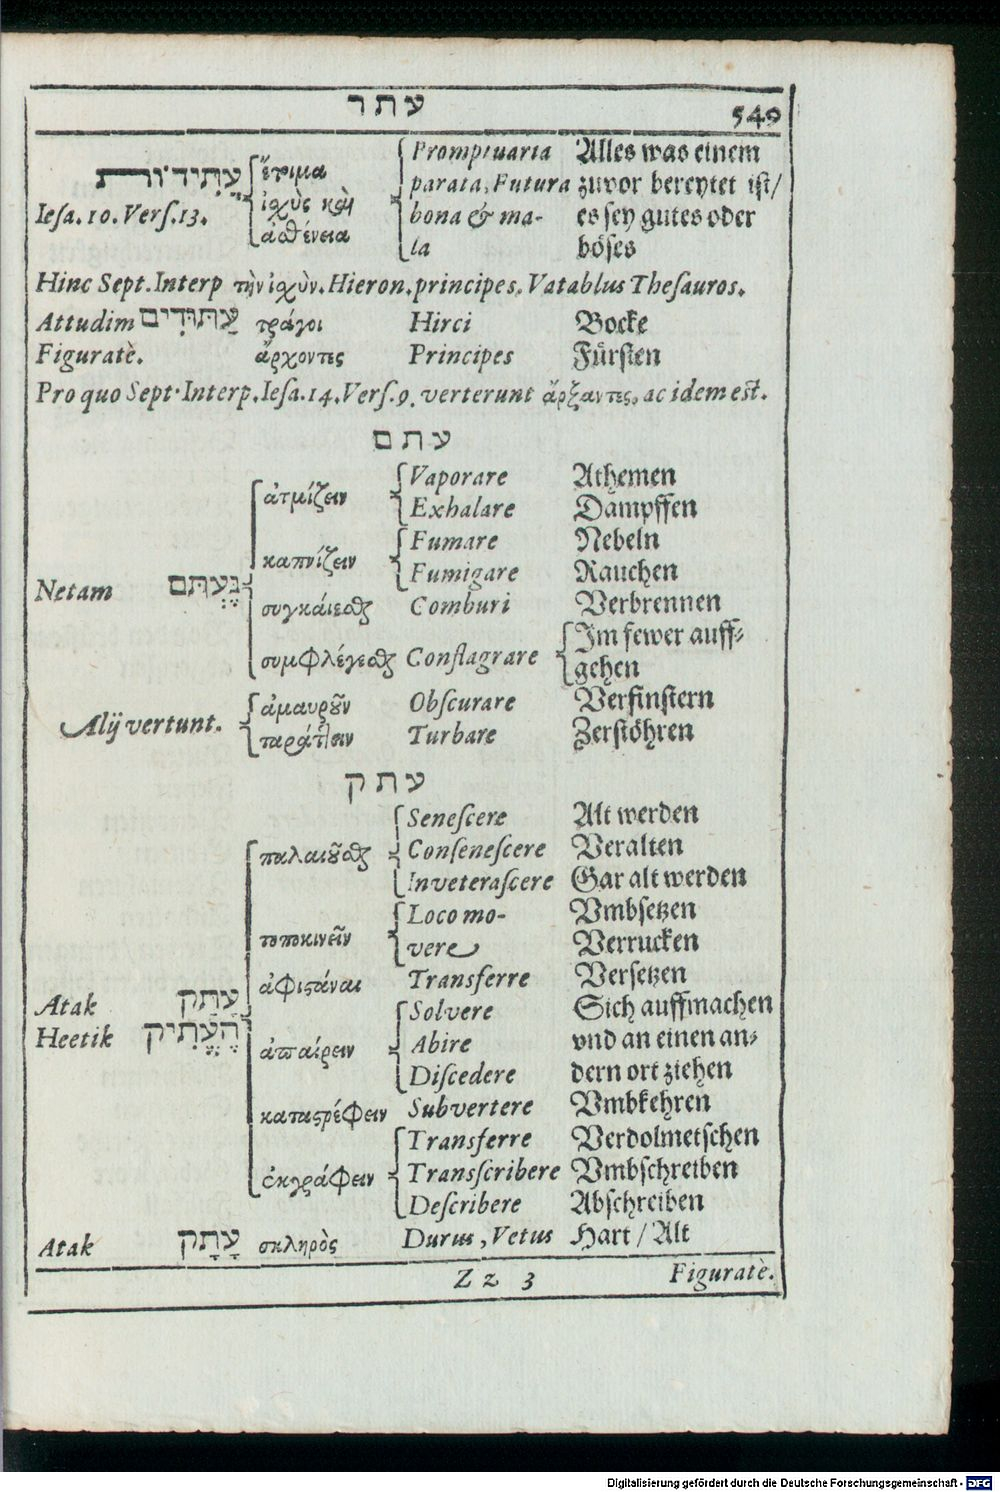 עתר 549
עֲתִידוֹת ἕτοιμα Promptuaria Alles was einem
parata, Futura zuvor bereytet ist/
Iesa. 10. Vers. 13. ἰσχὺς καὶ bona & ma- es sey gutes oder
ἀσθένεια la böses
Hinc Sept. Interp τὴν ἰσχὺν. Hieron. principes. Vatablus Thesauros.
Attudim עַתּוּדִים τράγοι Hirci Bocke
Figuratè. ἄρχοντες Principes Fürsten
Pro quo Sept. Interp. Iesa. 14. Vers. 9. verterunt ἄρξαντες. ac idem est.
עתם
ἀτμίζειν Vaporare Athemen
Exhalare Dampffen
καπνίζειν Fumare Nebeln
Fumigare Rauchen
Netam נֶעְתַּם συγκαίεσθαι Comburi Verbrennen
συμφλέγεσθαι Conflagrare Im fewer auff-
gehen
Alij vertunt. ἀμαυροῦν Obscurare Verfinstern
ταράττειν Turbare Zerstöhren
עתק
Senescere Alt werden
παλαιοῦσθαι Consenescere Veralten
Inveterascere Gar alt werden
τοποκινεῖν Loco mo- Vmbsetzen
vere Verrucken
ἀφιστάναι Transferre Versetzen
Atak עָתַק Solvere Sich auffmachen
Heetik הֶעֱתִיק ἀπαίρειν Abire vnd an einen an-
Discedere dern ort ziehen
καταστρέφειν Subvertere Vmbkehren
Transferre Verdolmetschen
ἐκγράφειν Transscribere Vmbschreiben
Describere Abschreiben
Atak עָתָק σκληρὸς Durus, Vetus Hart / Alt
Zz 3 Figuratè.
Digitalisierung gefördert durch die Deutsche Forschungsgemeinschaft - DFG